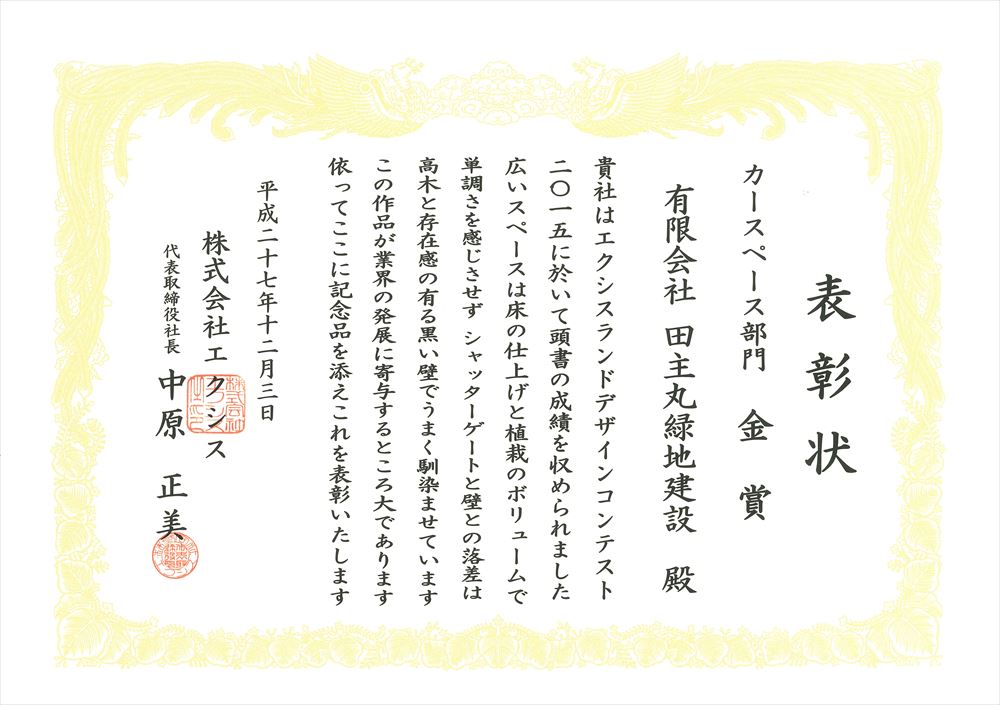 表彰状
カースペース部門 金賞
有限会社 田主丸緑地建設 殿
貴社はエクシスランドデザインコンテスト
二〇一五に於いて頭書の成績を収められました
広いスペースは床の仕上げと植栽のボリュームで
単調さを感じさせず シャッターゲートと壁との落差は
高木と存在感の有る黒い壁でうまく馴染ませています
この作品が業界の発展に寄与するところ大であります
依ってここに記念品を添えこれを表彰いたします
平成二十七年十二月三日
株式会社エクシス
代表取締役社長 中原 正美